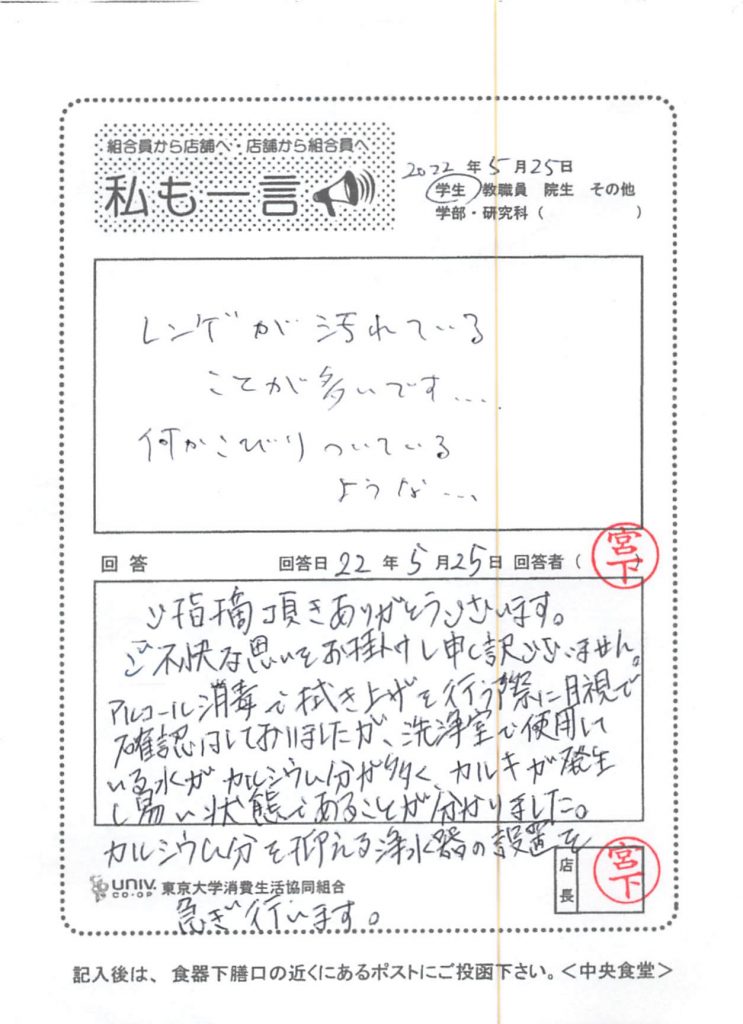 組合員から店舗へ・店舗から組合員へ
私も一言
2022年5月25日
学生 教職員 院生 その他
学部・研究科（　　　）
レンゲが汚れている
ことが多いです...
何かこびりついている
ような...
回答 回答日 22年5月25日 回答者（宮下）
ご指摘頂きありがとうございます。
ご不快な思いをお掛けし申し訳ございません。
アルコール消毒で拭き上げを行う際に目視で
確認はしておりましたが、洗浄室で使用して
いる水がカルシウム分が多く、カルキが発生
し易い状態であることが分かりました。
カルシウム分を抑える浄水器の設置を
急ぎ行います。
UNIV. CO-OP 東京大学消費生活協同組合
店長 宮下
記入後は、食器下膳口の近くにあるポストにご投函下さい。＜中央食堂＞